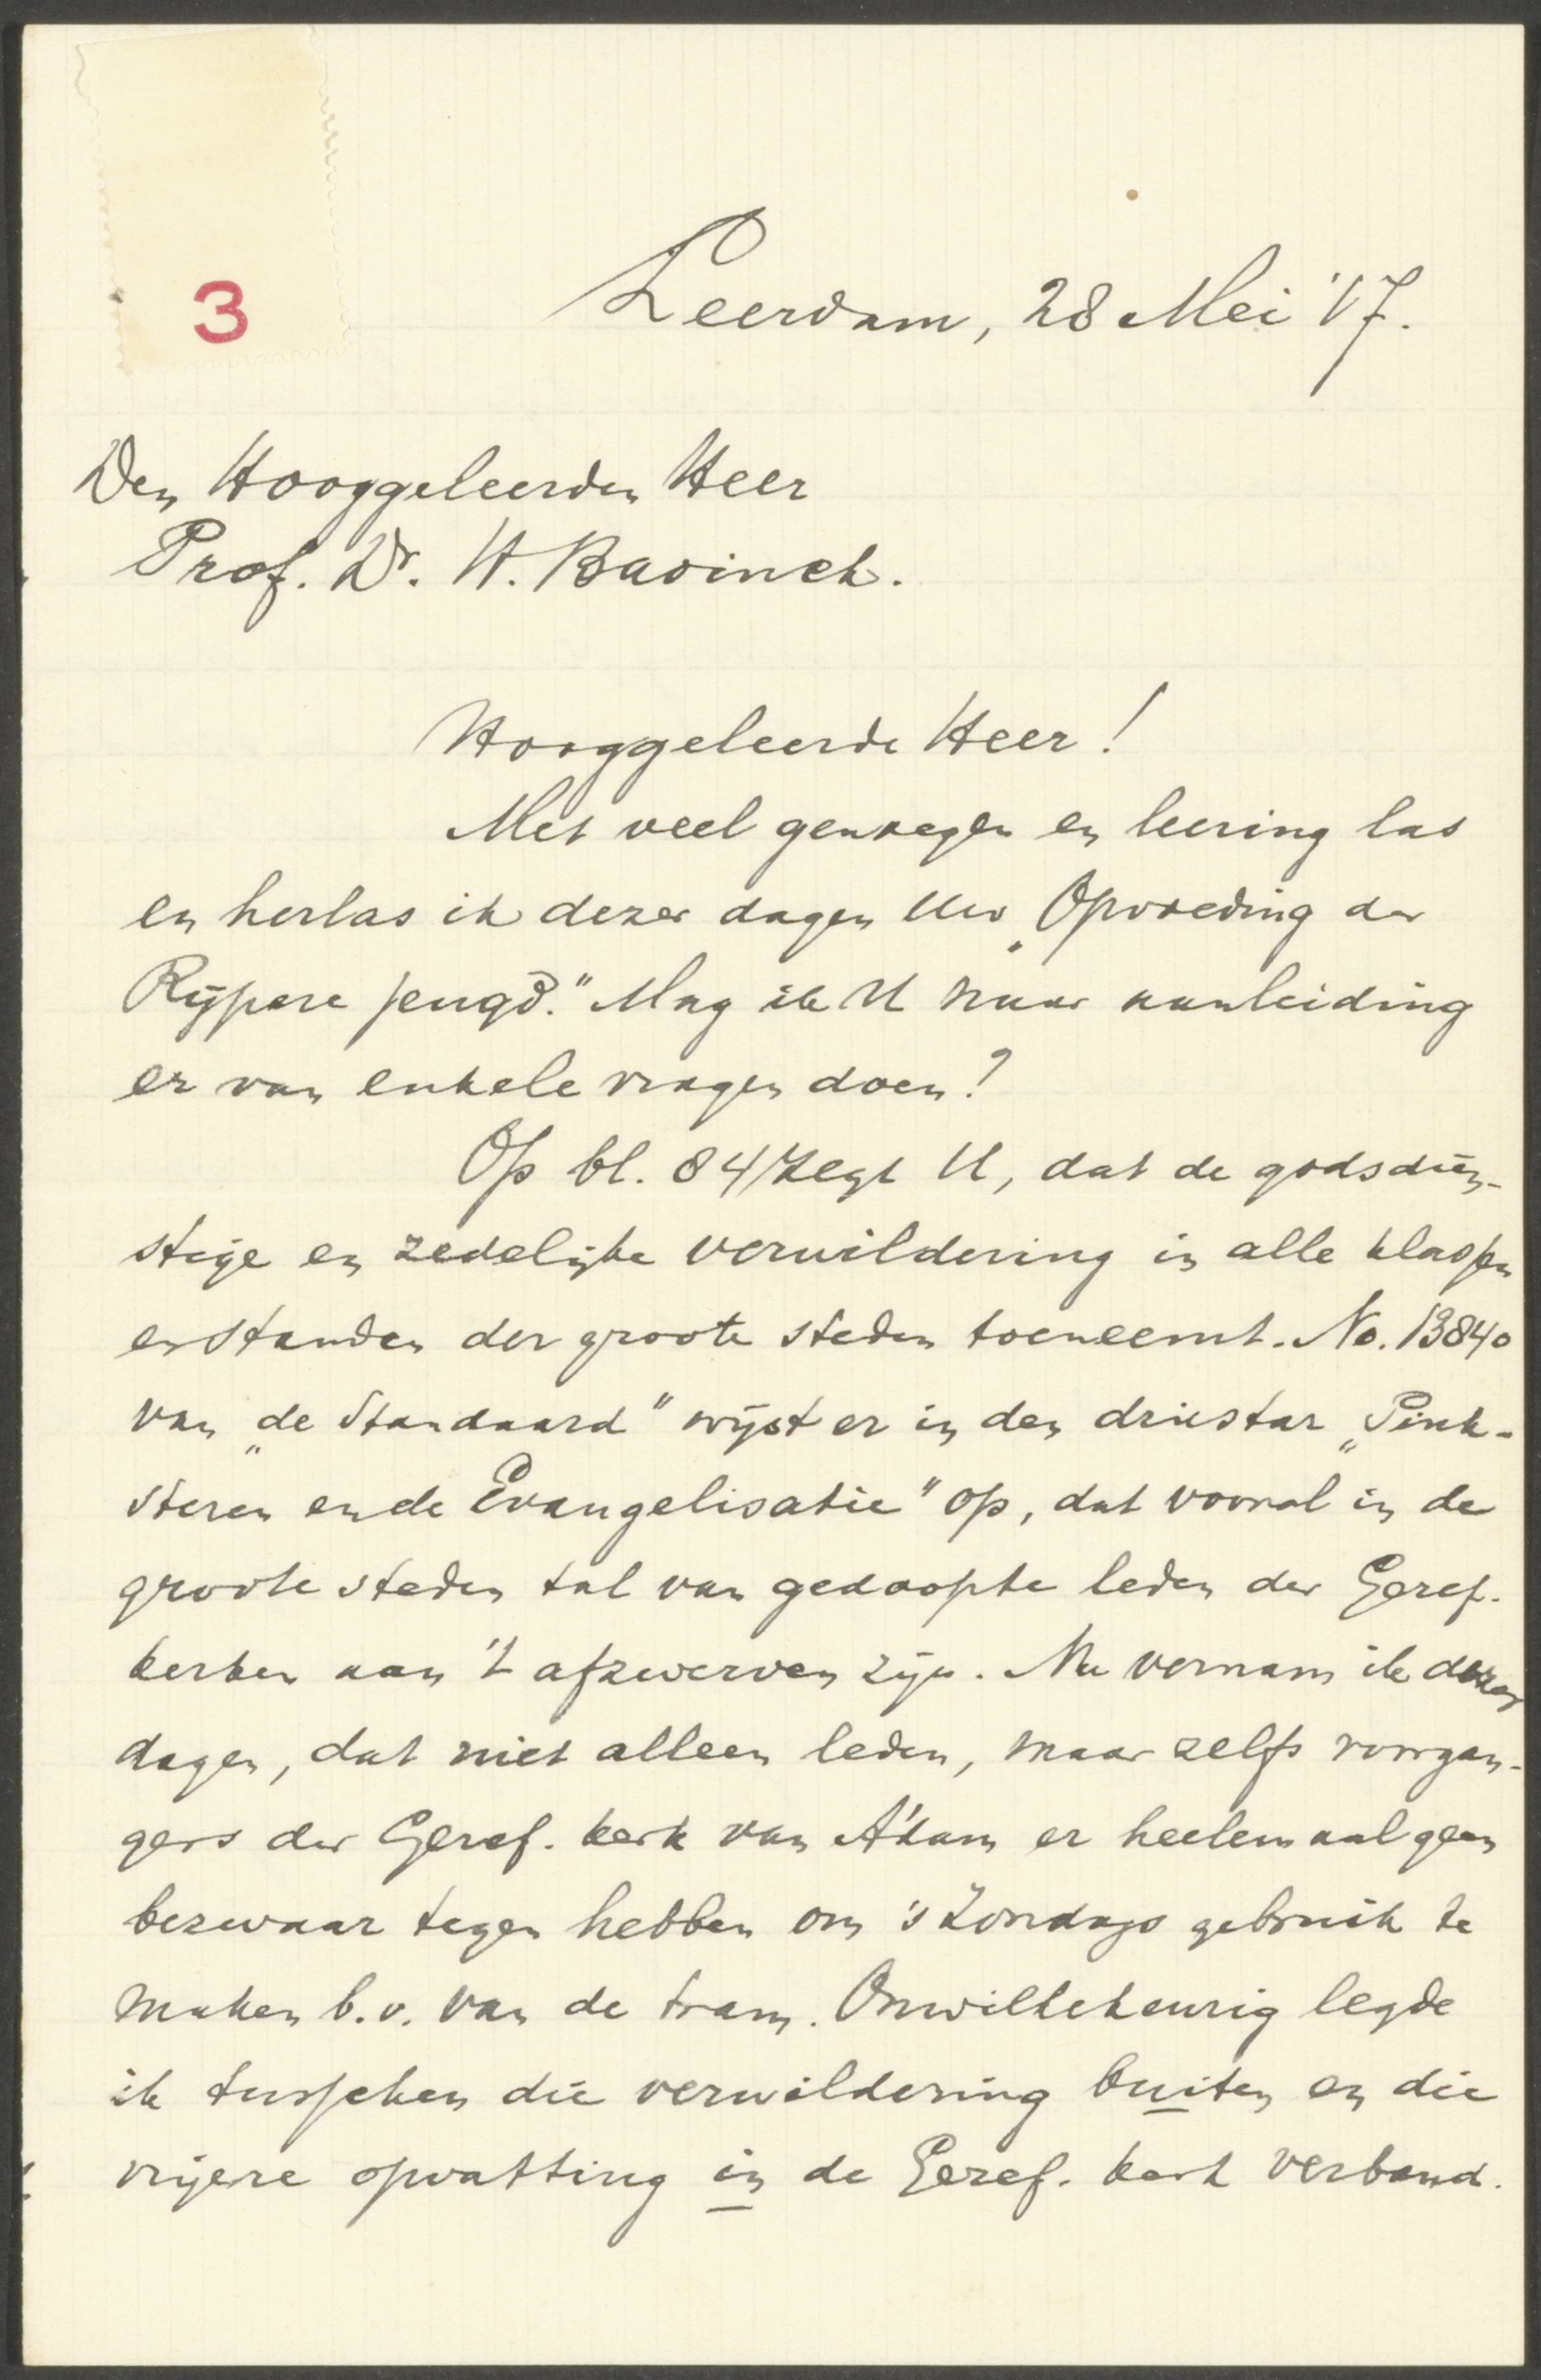 3
Leerdam, 28 Mei '17.
Den Hooggeleerden Heer
Prof. Dr. H. Bavinck.
Hooggeleerde Heer!
Met veel genoegen en leering las
en herlas ik dezer dagen Uw „Opvoeding der
Rijpere jeugd." Mag ik U naar aanleiding
er van enkele vragen doen?
Op bl. 84 zegt U, dat de godsdien-
stige en zedelijke verwildering in alle klassen
en standen der groote steden toeneemt. No. 13840
van „de Standaard" wijst er in den driestar „Pink-
steren en de Evangelisatie" op, dat vooral in de
groote steden tal van gedoopte leden der Geref.
kerken aan 't afzwerven zijn. Nu vernam ik dezer
dagen, dat niet alleen leden, maar zelfs voorgan-
gers der Geref. kerk van A'dam er heelemaal geen
bezwaar tegen hebben om 's Zondags gebruik te
maken b.v. van de tram. Onwillekeurig legde
ik tusschen die verwildering buiten en die
vrijere opvatting in de Geref. kerk verband.